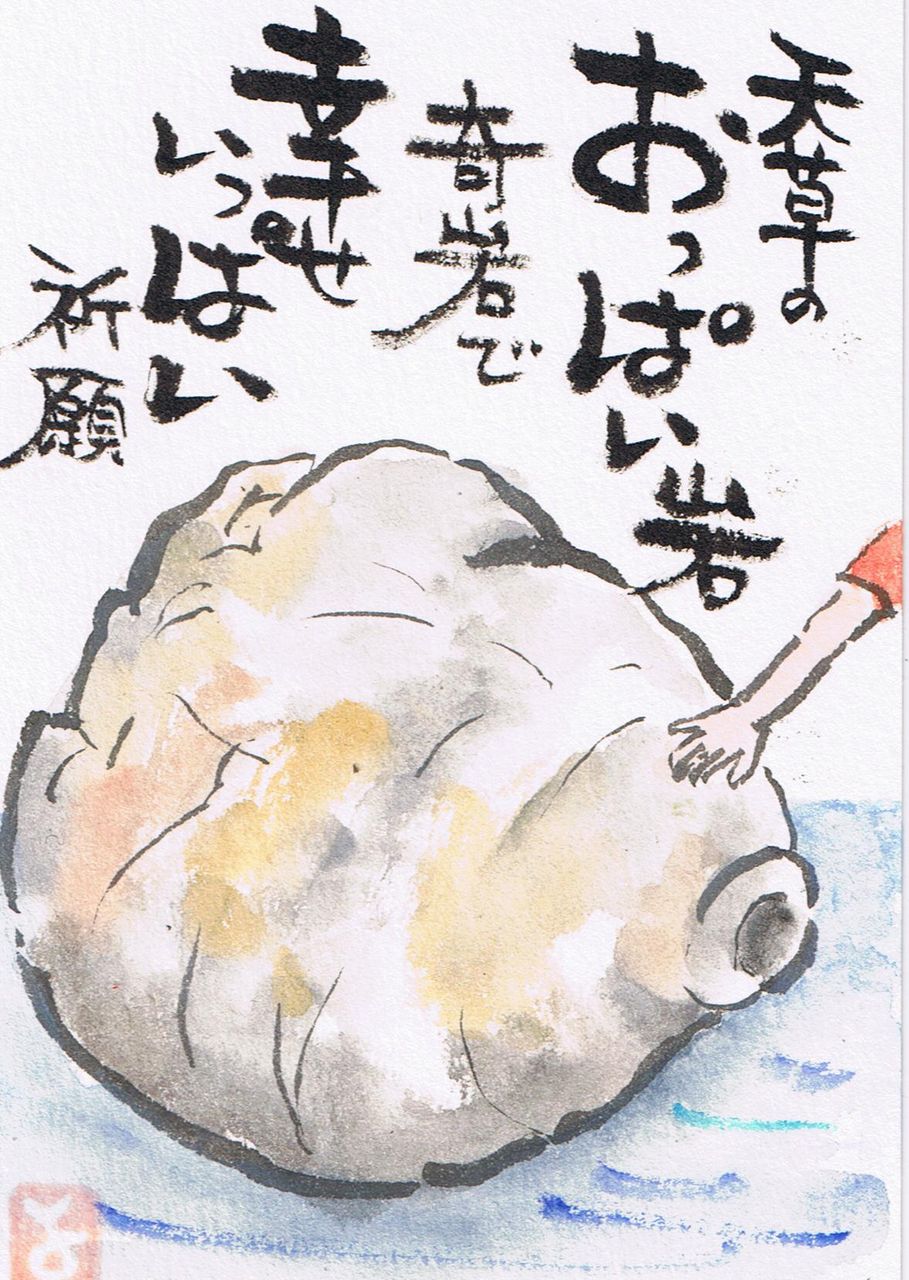 天草の
おっぱい岩
奇岩で
幸せ
いっぱい
祈願
よ